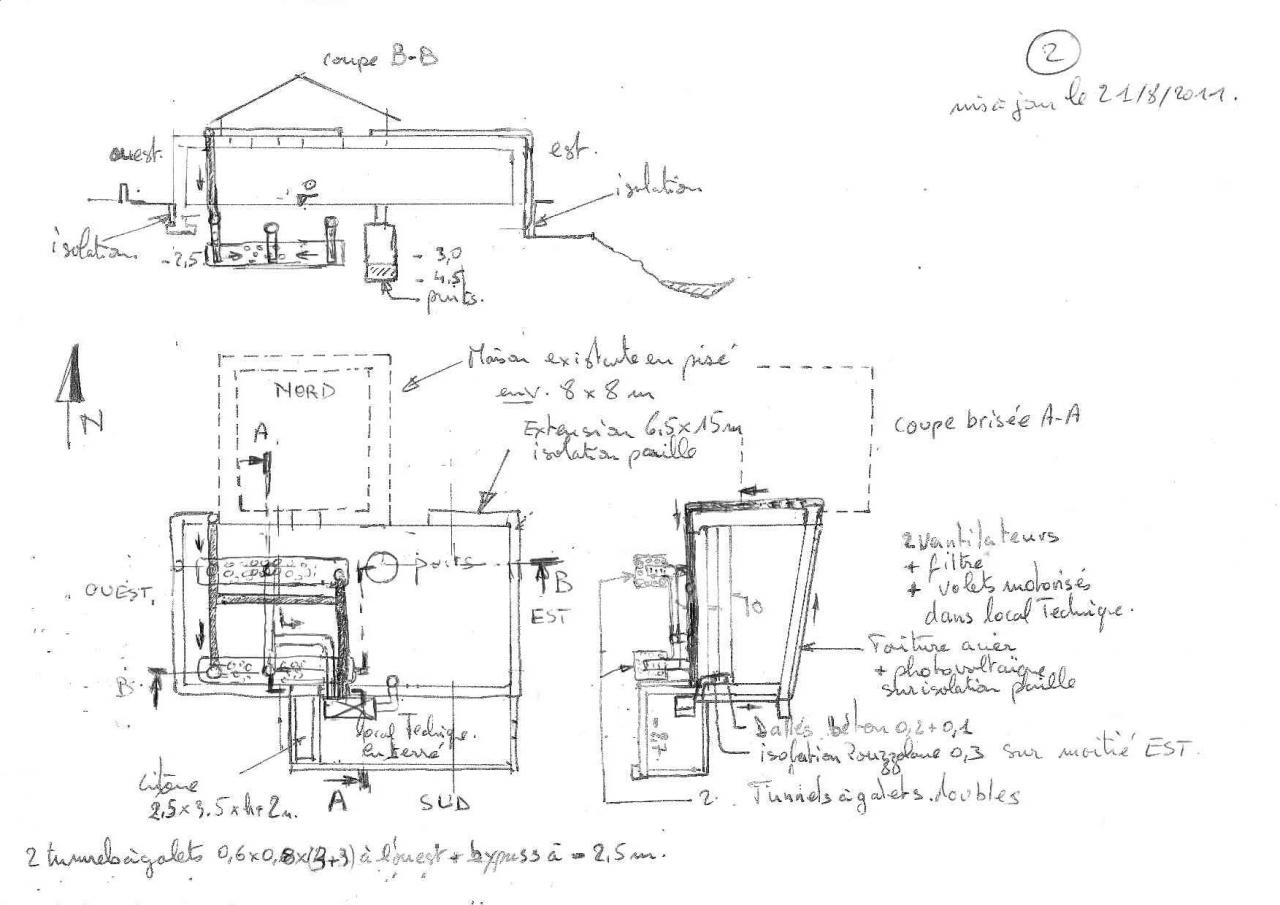 coupe B-B
2
mis à jour le 21/8/2011.
ouest.
est.
0
isolation
isolation
-2,5
- 3,0
- 4,5
puits.
N
NORD
Maison existante en pisé
env. 8 x 8 m
Extension 6,5 x 15 m
isolation paille
coupe brisée A-A
A
OUEST.
puits
B
EST
B
2 ventilateurs
+ filtre
+ volets motorisés
dans local technique.
Toiture acier
+ photovoltaïque
sur isolation paille
local technique
enterré
Dalles béton 0,2+0,1
isolation Pouzzolane 0,3 sur moitié EST.
2 Tunnels à galets doubles
Citerne
2,5 x 3,5 x h+2m.
A
SUD
2 tunnels à galets 0,6x0,8x(3+3) à l'ouest + bypass à - 2,5 m.